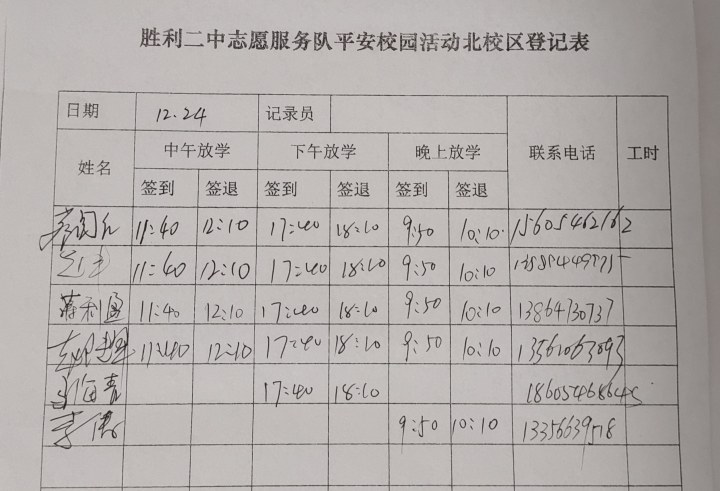 胜利二中志愿服务队平安校园活动北校区登记表
日期 12.24 记录员
姓名 中午放学 下午放学 晚上放学 联系电话 工时
签到 签退 签到 签退 签到 签退
11:40 12:10 17:40 18:10 9:50 10:10
11:40 12:10 17:40 18:10 9:50 10:10
蒋利 11:40 12:10 17:40 18:10 9:50 10:10 13864730737
11:40 12:10 17:40 18:10 9:50 10:10
17:40 18:10
李 9:50 10:10 13356639518